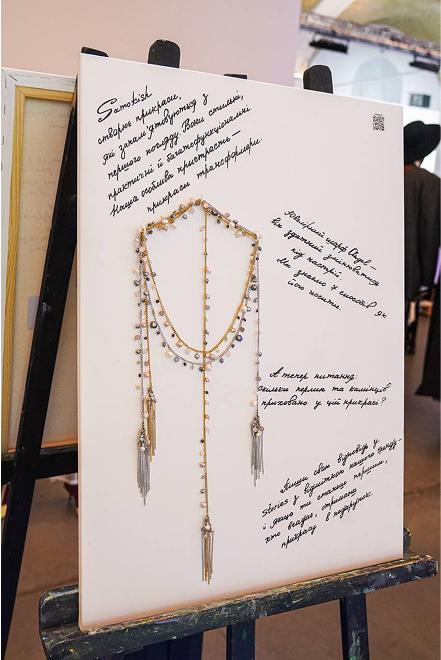 Samokish
створює прикраси,
які запам'ятовуються з
першого погляду. Вони стильні,
практичні й багатофункціональні
Наша особлива пристрасть —
прикраси трансформери.
Ювелірний шарф Angel —
він здатний змінюватися
під настрій.
Ми знаємо способів як
його носити.
А тепер питання:
скільки перлин та камінців
приховано у цій прикрасі?
Пиши свою відповідь у
Stories з відміткою нашого бренду —
і якщо ти станеш першим,
хто вгадає, отримаєш
прикрасу в подарунок.